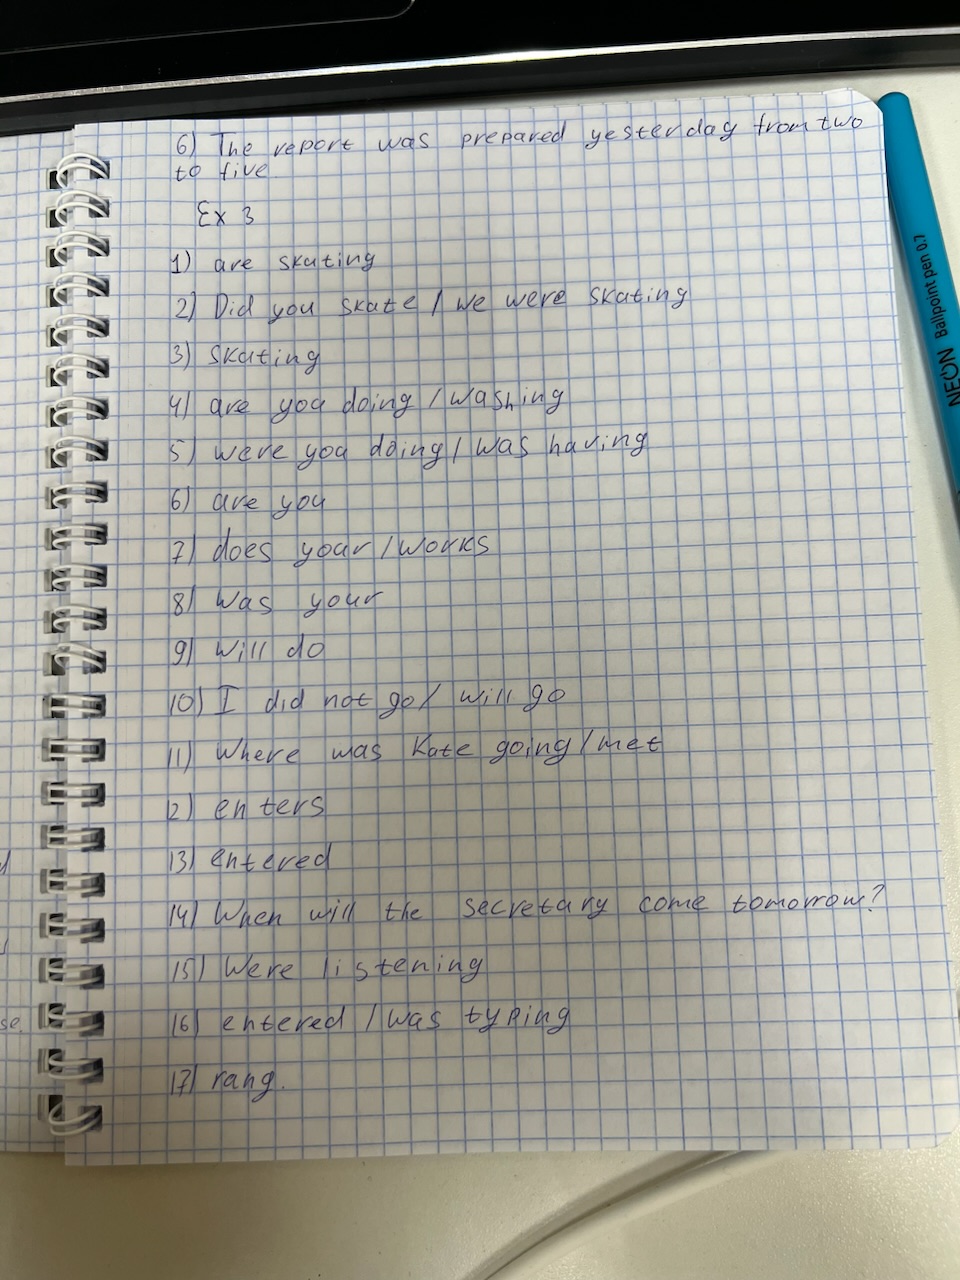 6) The report was prepared yesterday from two
to five
Ex 3
1) are skating
2) Did you skate / we were skating
3) skating
4) are you doing / washing
5) were you doing / was having
6) are you
7) does your / works
8) Was your
9) will do
10) I did not go / will go
11) Where was Kate going / met
12) enters
13) entered
14) When will the secretary come tomorrow?
15) Were listening
16) entered / was typing
17) rang.
se.
NEON Ballpoint pen 0.7